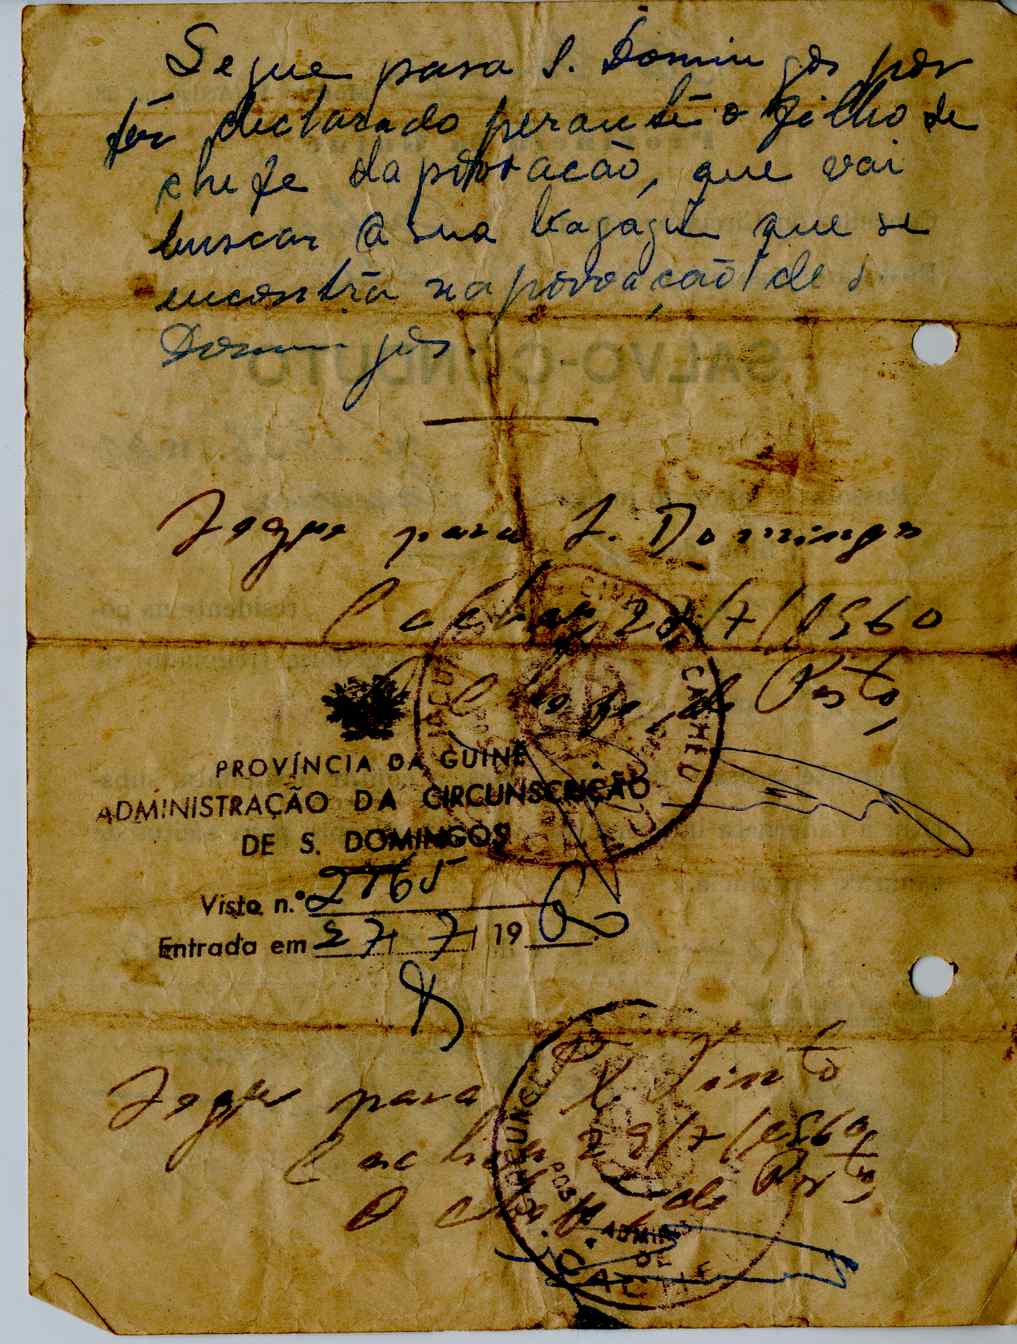 Segue para S. Domingos por
ter declarado perante o filho de
chefe da povoacão, que vai
buscar a sua bagagem que se
encontra na povoacão de S.
Domingos
SALVO-CONDUTO
Segue para S. Domingos
Cacheu 27/7/1960
O Chefe de Posto,
CACHEU
PROVÍNCIA DA GUINÉ
ADMINISTRAÇÃO DA CIRCUNSCRIÇÃO
DE S. DOMINGOS
Visto n.º 2765
Entrada em 27/7/1960
Segue para P. Tinto
Cacheu 29/7/1960
O chefe de Posto,